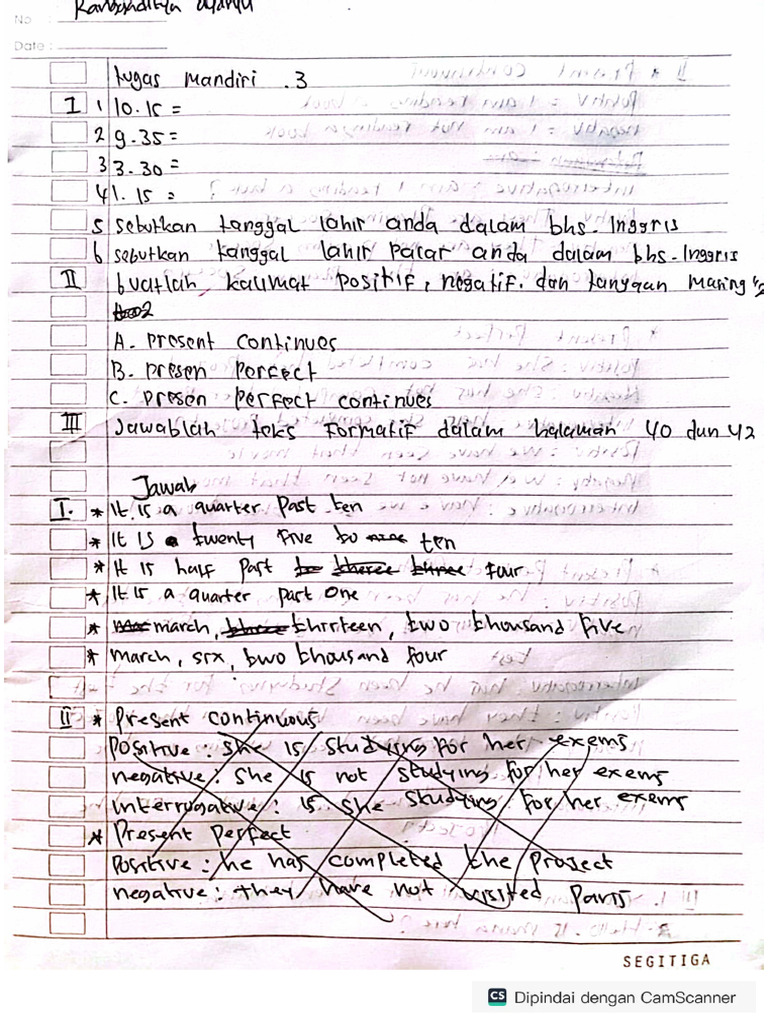 No :
Date :
tugas mandiri . 3
I 1 10.15 =
2 9.35 =
3 3.30 =
4 1.15 =
5 sebutkan tanggal lahir anda dalam bhs-Inggris
6 sebutkan tanggal lahir pacar anda dalam bhs-Inggris
II buatlah kalimat positif, negatif. dan tanyaan masing"2
A. Present continues
B. Presen Perfect
C. Presen Perfect continues
III Jawablah teks formatif dalam halaman 40 dan 42
Jawab
I. * It is a quarter past ten
* It is twenty five to ten
* It is half past four
* It is a quarter past one
* march, thirteen, two thousand five
* march, six, two thousand four
II * Present continuous
Positive : She is studying for her exems
negative : She is not studying for her exems
Interrogative : is she studying for her exems
* Present perfect
Positive : he has completed the project
negative : they have not visited Paris
SEGITIGA
CS Dipindai dengan CamScanner